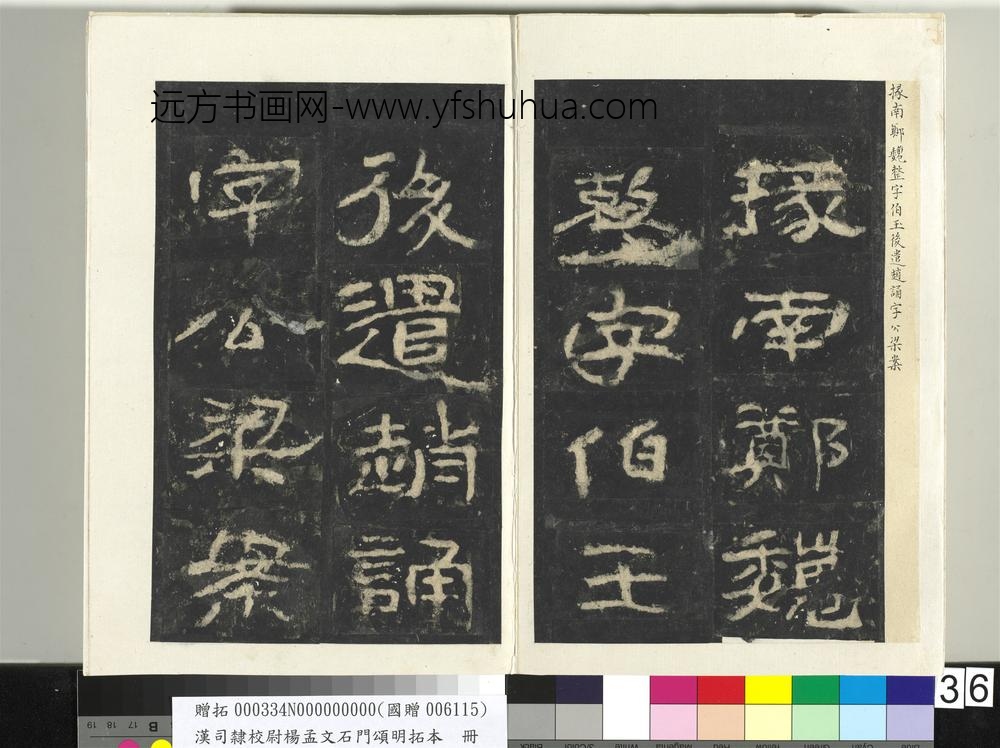 远方书画网-www.yfshuhua.com
掾南鄭魏整字伯玉後遣趙誦字公梁案
掾南鄭魏
整字伯王
後遣趙誦
字公梁案
36
贈拓000334N000000000(國贈 006115)
漢司隸校尉楊孟文石門頌明拓本 冊
19 18 17 16 B
Black
3/Color
White
Magenta
Red
Yellow
Green
Cyan
Blue